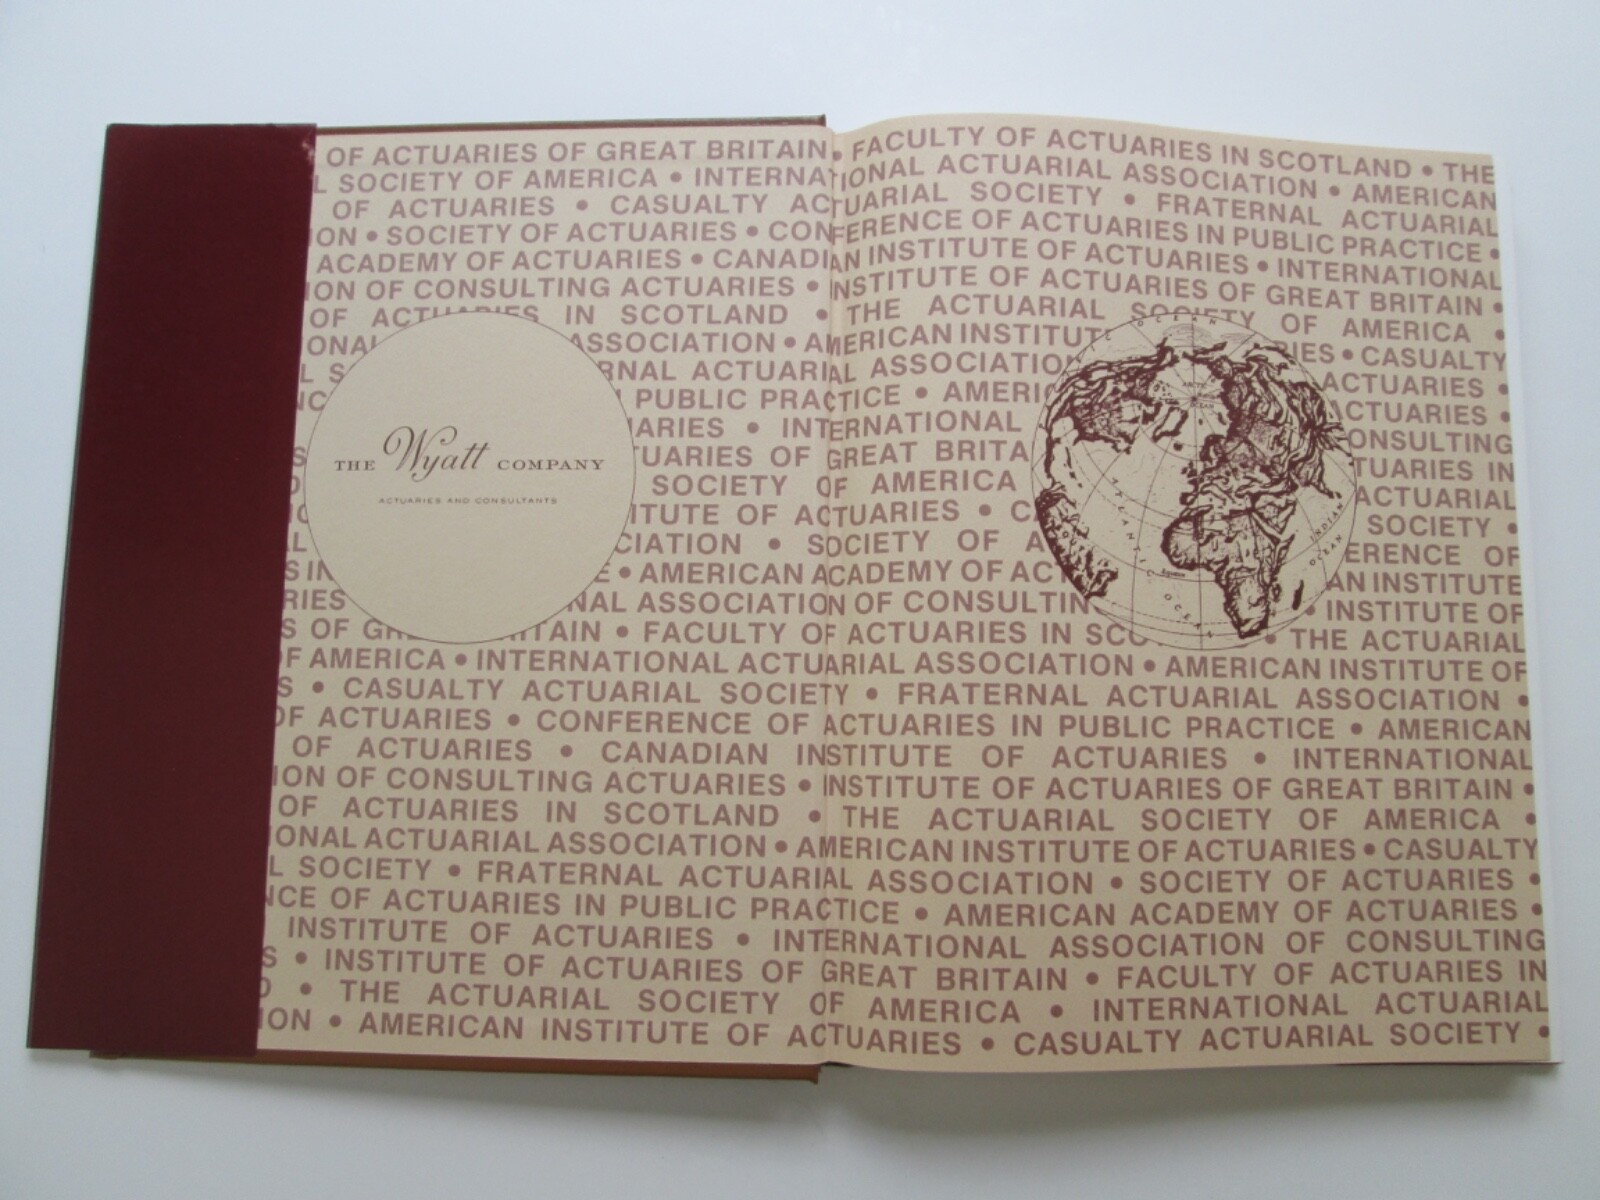 OF ACTUARIES OF GREAT BRITAIN • FACULTY OF ACTUARIES IN SCOTLAND • THE
L SOCIETY OF AMERICA • INTERNATIONAL ACTUARIAL ASSOCIATION • AMERICAN
OF ACTUARIES • CASUALTY ACTUARIAL SOCIETY • FRATERNAL ACTUARIAL
ION • SOCIETY OF ACTUARIES • CONFERENCE OF ACTUARIES IN PUBLIC PRACTICE •
ACADEMY OF ACTUARIES • CANADIAN INSTITUTE OF ACTUARIES • INTERNATIONAL
ION OF CONSULTING ACTUARIES • INSTITUTE OF ACTUARIES OF GREAT BRITAIN •
OF ACTUARIES IN SCOTLAND • THE ACTUARIAL SOCIETY OF AMERICA •
ONAL ASSOCIATION • AMERICAN INSTITUTE RIES • CASUALTY
L S RNAL ACTUARIAL ASSOCIATION ACTUARIES •
NC PUBLIC PRACTICE • AMERIC ACTUARIES •
IARIES • INTERNATIONAL ONSULTING
S TUARIES OF GREAT BRITA TUARIES IN
SOCIETY OF AMERICA ACTUARIAL
ITUTE OF ACTUARIES • CA SOCIETY •
AL CIATION • SOCIETY OF A ERENCE OF
S IN E • AMERICAN ACADEMY OF ACT AN INSTITUTE
RIES NAL ASSOCIATION OF CONSULTIN • INSTITUTE OF
S OF GRE ITAIN • FACULTY OF ACTUARIES IN SCO • THE ACTUARIAL
OF AMERICA • INTERNATIONAL ACTUARIAL ASSOCIATION • AMERICAN INSTITUTE OF
S • CASUALTY ACTUARIAL SOCIETY • FRATERNAL ACTUARIAL ASSOCIATION •
OF ACTUARIES • CONFERENCE OF ACTUARIES IN PUBLIC PRACTICE • AMERICAN
OF ACTUARIES • CANADIAN INSTITUTE OF ACTUARIES • INTERNATIONAL
ION OF CONSULTING ACTUARIES • INSTITUTE OF ACTUARIES OF GREAT BRITAIN •
OF ACTUARIES IN SCOTLAND • THE ACTUARIAL SOCIETY OF AMERICA •
IONAL ACTUARIAL ASSOCIATION • AMERICAN INSTITUTE OF ACTUARIES • CASUALTY
L SOCIETY • FRATERNAL ACTUARIAL ASSOCIATION • SOCIETY OF ACTUARIES •
NCE OF ACTUARIES IN PUBLIC PRACTICE • AMERICAN ACADEMY OF ACTUARIES •
INSTITUTE OF ACTUARIES • INTERNATIONAL ASSOCIATION OF CONSULTING
S • INSTITUTE OF ACTUARIES OF GREAT BRITAIN • FACULTY OF ACTUARIES IN
D • THE ACTUARIAL SOCIETY OF AMERICA • INTERNATIONAL ACTUARIAL
ION • AMERICAN INSTITUTE OF ACTUARIES • CASUALTY ACTUARIAL SOCIETY •
THE Wyatt COMPANY
ACTUARIES AND CONSULTANTS
OCEAN
ARCTIC
OCEAN
ATLANTIC OCEAN
INDIAN
OCEAN